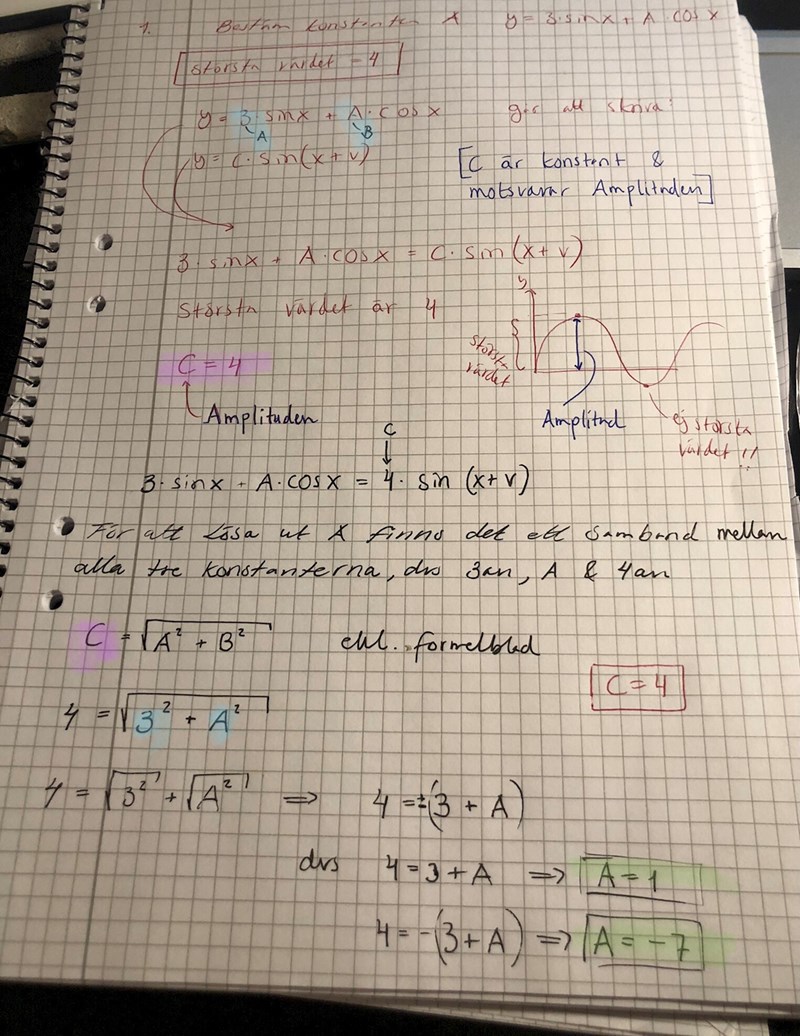 1. Bestäm konstanten A y = 3·sinx + A·cosx
största värdet = 4
y = 3·sinx + A·cosx går att skriva:
A B
y = C·sin(x+v)
[C är konstant &
motsvarar Amplituden]
3·sinx + A·cosx = C·sin(x+v)
största värdet är 4
y
största
värdet
C = 4
Amplituden
Amplitud
ej största
värdet !!
C
3·sinx + A·cosx = 4·sin(x+v)
För att lösa ut A finns det ett samband mellan
alla tre konstanterna, dvs 3an, A & 4an
C = √(A² + B²) enl. formelblad
C = 4
4 = √(3² + A²)
4 = √3² + √A² ⇒ 4 = ±(3 + A)
dvs 4 = 3 + A ⇒ A = 1
4 = -(3 + A) ⇒ A = -7